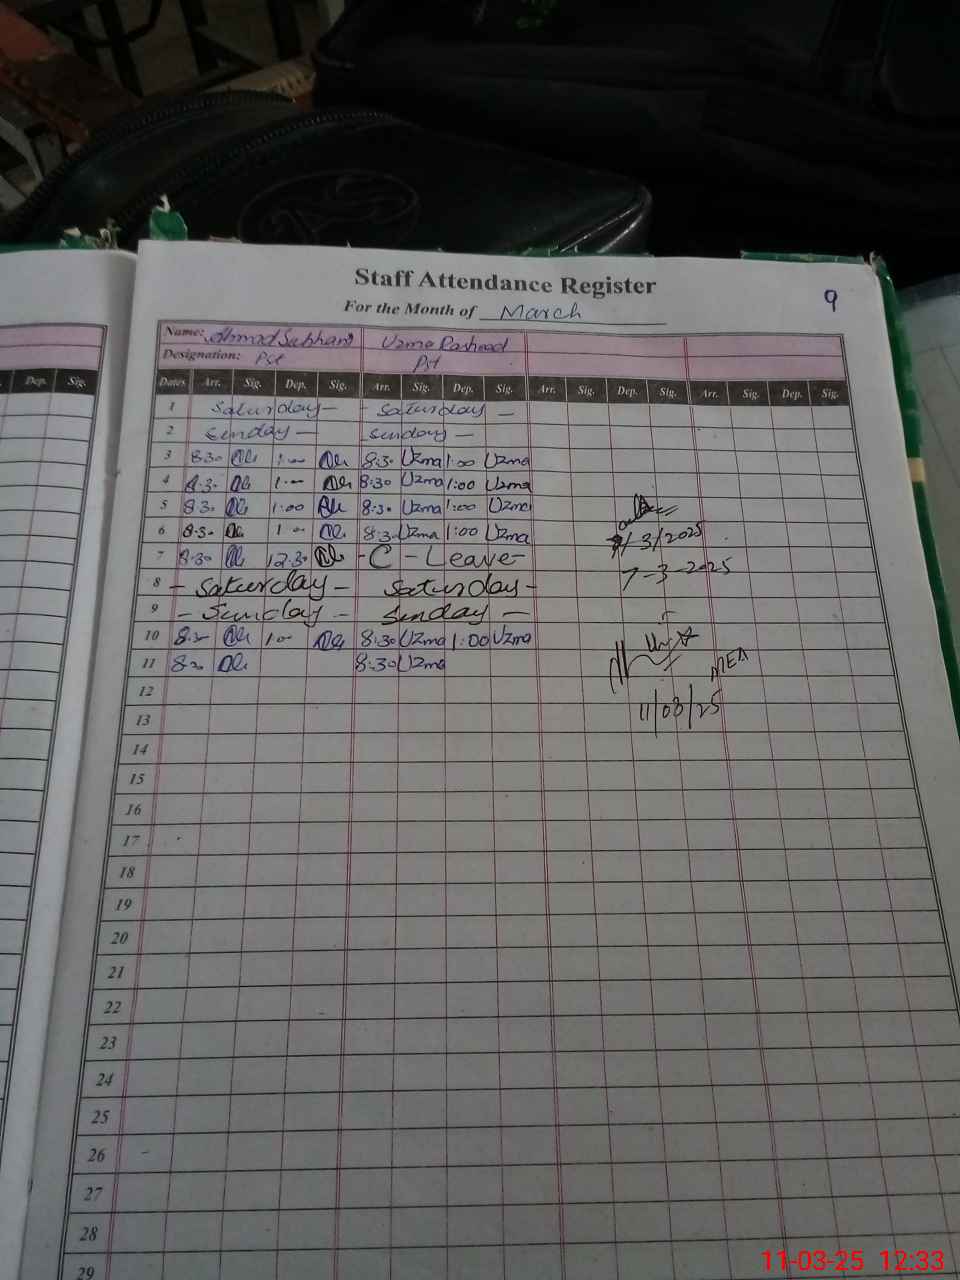 Staff Attendance Register
For the Month of March
9
Name: Ahmad Subhani Uzma Rasheed
Designation: Pst Pst
Dep. Sig. Dates Arr. Sig. Dep. Sig. Arr. Sig. Dep. Sig. Arr. Sig. Dep. Sig. Arr. Sig. Dep. Sig.
1 Saturday - - Saturday -
2 Sunday - - Sunday -
3 8:30 1:00 8:30 Uzma 1:00 Uzma
4 8:30 1:00 8:30 Uzma 1:00 Uzma
5 8:30 1:00 8:30 Uzma 1:00 Uzma
6 8:30 1:00 8:30 Uzma 1:00 Uzma
7/3/2025
7 8:30 12:30 - C - Leave -
7-3-2025
8 - Saturday - Saturday -
9 - Sunday - Sunday -
10 8:30 1:00 8:30 Uzma 1:00 Uzma
11 8:30 8:30 Uzma
MEA
12
11/03/25
13
14
15
16
17
18
19
20
21
22
23
24
25
26
27
28
29
11-03-25 12:33